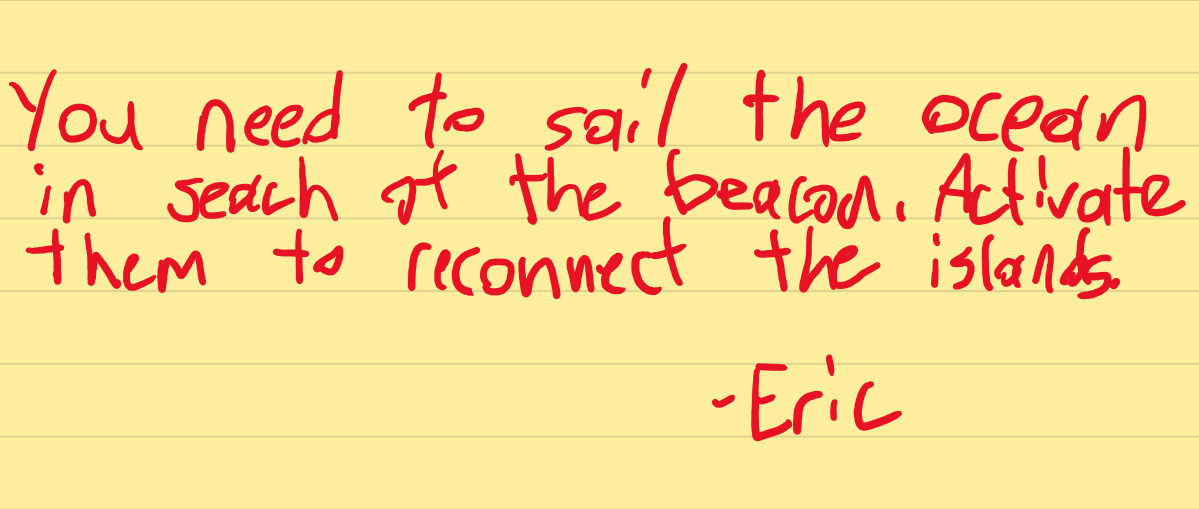 You need to sail the ocean
in seach of the beacon. Activate
them to reconnect the islands.
-Eric